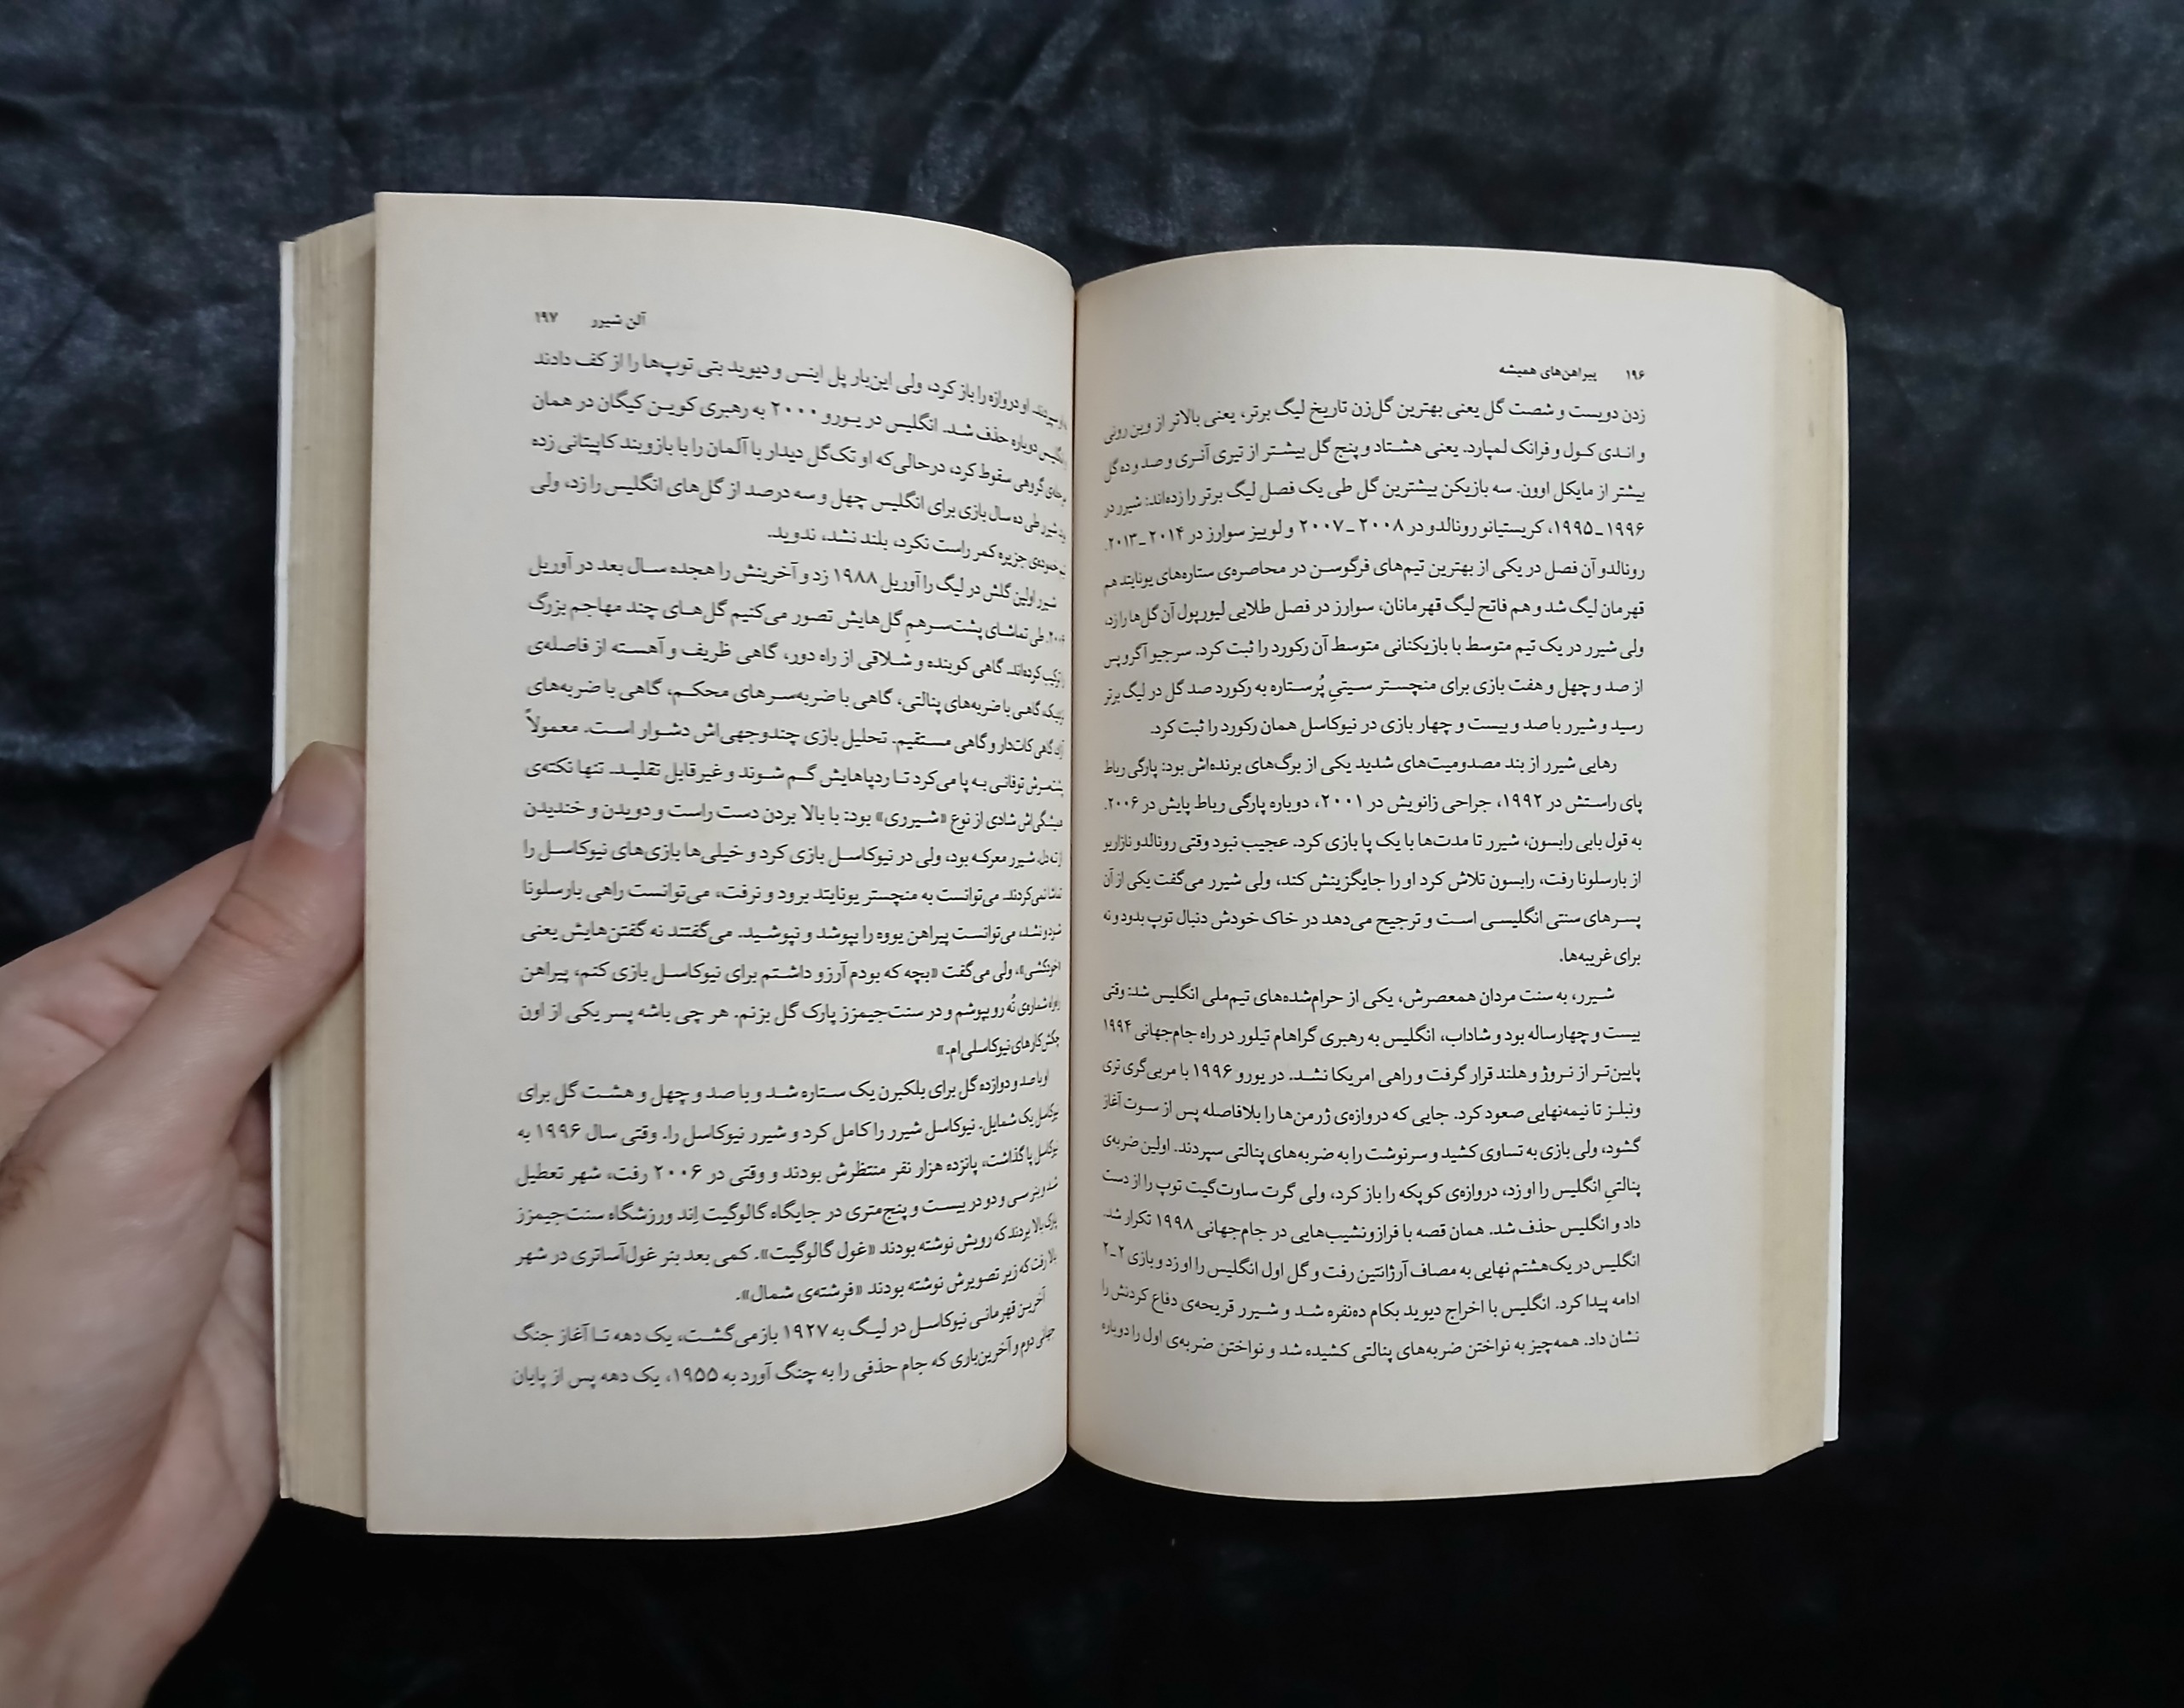 ۱۹۶ پیراهن‌های همیشه
زدن دویست و شصت گل یعنی بهترین گل‌زن تاریخ لیگ برتر، یعنی بالاتر از وین رونی
و اندی کول و فرانک لمپارد. یعنی هشتاد و پنج گل بیشتر از تیری آنری و صد و ده گل
بیشتر از مایکل اوون. سه بازیکن بیشترین گل طی یک فصل لیگ برتر را زده‌اند: شیرر در
۱۹۹۶ـ۱۹۹۵، کریستیانو رونالدو در ۲۰۰۸ـ۲۰۰۷ و لوییز سوارز در ۲۰۱۴ـ۲۰۱۳.
رونالدو آن فصل در یکی از بهترین تیم‌های فرگوسن در محاصره‌ی ستاره‌های یونایتد هم
قهرمان لیگ شد و هم فاتح لیگ قهرمانان، سوارز در فصل طلایی لیورپول آن گل‌ها را زد،
ولی شیرر در یک تیم متوسط با بازیکنانی متوسط آن رکورد را ثبت کرد. سرجیو آگرو پس
از صد و چهل و هفت بازی برای منچستر سیتیِ پُرستاره به رکورد صد گل در لیگ برتر
رسید و شیرر با صد و بیست و چهار بازی در نیوکاسل همان رکورد را ثبت کرد.
رهایی شیرر از بند مصدومیت‌های شدید یکی از برگ‌های برنده‌اش بود: پارگی رباط
پای راستش در ۱۹۹۲، جراحی زانویش در ۲۰۰۱، دوباره پارگی رباط پایش در ۲۰۰۶.
به قول بابی رابسون، شیرر تا مدت‌ها با یک پا بازی کرد. عجیب نبود وقتی رونالدو نازاریو
از بارسلونا رفت، رابسون تلاش کرد او را جایگزینش کند، ولی شیرر می‌گفت یکی از آن
پسرهای سنتی انگلیسی است و ترجیح می‌دهد در خاک خودش دنبال توپ بدود و نه
برای غریبه‌ها.
شیرر، به سنت مردان همعصرش، یکی از حرام‌شده‌های تیم‌ملی انگلیس شد: وقتی
بیست و چهارساله بود و شاداب، انگلیس به رهبری گراهام تیلور در راه جام‌جهانی ۱۹۹۴
پایین‌تر از نروژ و هلند قرار گرفت و راهی امریکا نشد. در یورو ۱۹۹۶ با مربی‌گری تری
ونبلز تا نیمه‌نهایی صعود کرد. جایی که دروازه‌ی ژرمن‌ها را بلافاصله پس از سوت آغاز
گشود، ولی بازی به تساوی کشید و سرنوشت را به ضربه‌های پنالتی سپردند. اولین ضربه‌ی
پنالتیِ انگلیس را او زد، دروازه‌ی کوپکه را باز کرد، ولی گرت ساوت‌گیت توپ را از دست
داد و انگلیس حذف شد. همان قصه با فرازونشیب‌هایی در جام‌جهانی ۱۹۹۸ تکرار شد.
انگلیس در یک‌هشتم نهایی به مصاف آرژانتین رفت و گل اول انگلیس را او زد و بازی ۲ـ۲
ادامه پیدا کرد. انگلیس با اخراج دیوید بکام ده‌نفره شد و شیرر قریحه‌ی دفاع کردنش را
نشان داد. همه‌چیز به نواختن ضربه‌های پنالتی کشیده شد و نواختن ضربه‌ی اول را دوباره
آلن شیرر ۱۹۷
او دروازه را باز کرد، ولی این‌بار پل اینس و دیوید بتی توپ‌ها را از کف دادند
دوباره حذف شد. انگلیس در یورو ۲۰۰۰ به رهبری کوین کیگان در همان
گروهی سقوط کرد، درحالی‌که او تک‌گل دیدار با آلمان را با بازوبند کاپیتانی زده
شیرر طی ده سال بازی برای انگلیس چهل و سه درصد از گل‌های انگلیس را زد، ولی
جزیره کمر راست نکرد، بلند نشد، ندوید.
شیرر اولین گلش در لیگ را آوریل ۱۹۸۸ زد و آخرینش را هجده سال بعد در آوریل
۲۰۰۶. طی تماشای پشت‌سرهمِ گل‌هایش تصور می‌کنیم گل‌های چند مهاجم بزرگ
ترکیب کرده‌اند. گاهی کوبنده و شلاقی از راه دور، گاهی ظریف و آهسته از فاصله‌ی
گاهی با ضربه‌های پنالتی، گاهی با ضربه‌سرهای محکم، گاهی با ضربه‌های
گاهی کات‌دار و گاهی مستقیم. تحلیل بازی چندوجهی‌اش دشوار است. معمولاً
توفانی به پا می‌کرد تا ردپاهایش گم شوند و غیرقابل تقلید. تنها نکته‌ی
همیشگی‌اش شادی از نوع «شیرری» بود: با بالا بردن دست راست و دویدن و خندیدن
از ته دل. شیرر معرکه بود، ولی در نیوکاسل بازی کرد و خیلی‌ها بازی‌های نیوکاسل را
تماشا نمی‌کردند. می‌توانست به منچستر یونایتد برود و نرفت، می‌توانست راهی بارسلونا
شود و نشد، می‌توانست پیراهن یووه را بپوشد و نپوشید. می‌گفتند نه گفتن‌هایش یعنی
ولی می‌گفت «بچه که بودم آرزو داشتم برای نیوکاسل بازی کنم، پیراهن
شماره‌ی نُه رو بپوشم و در سنت‌جیمزز پارک گل بزنم. هر چی باشه پسر یکی از اون
چکش‌کارهای نیوکاسلی‌ام.»
او با صد و دوازده گل برای بلکبرن یک ستاره شد و با صد و چهل و هشت گل برای
نیوکاسل یک شمایل. نیوکاسل شیرر را کامل کرد و شیرر نیوکاسل را. وقتی سال ۱۹۹۶ به
نیوکاسل پا گذاشت، پانزده هزار نفر منتظرش بودند و وقتی در ۲۰۰۶ رفت، شهر تعطیل
شد و بنر سی و دو در بیست و پنج‌متری در جایگاه گالوگیت اِند ورزشگاه سنت‌جیمزز
پارک بالا بردند که رویش نوشته بودند «غول گالوگیت». کمی بعد بنر غول‌آساتری در شهر
بالا رفت که زیر تصویرش نوشته بودند «فرشته‌ی شمال».
آخرین قهرمانی نیوکاسل در لیگ به ۱۹۲۷ بازمی‌گشت، یک دهه تا آغاز جنگ
جهانی دوم و آخرین‌باری که جام حذفی را به چنگ آورد به ۱۹۵۵، یک دهه پس از پایان